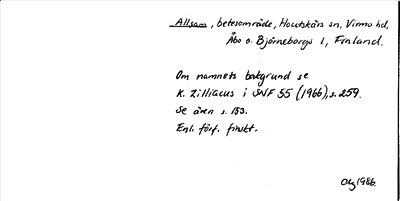 Allsam, betesområde, Houtskärs sn, Virmo hd,
Åbo o. Björneborgs l, Finland.
Om namnets bakgrund se
K. Zilliacus i SNF 55 (1966), s. 259.
Se även s. 153.
Enl. förf. finskt.
1986.